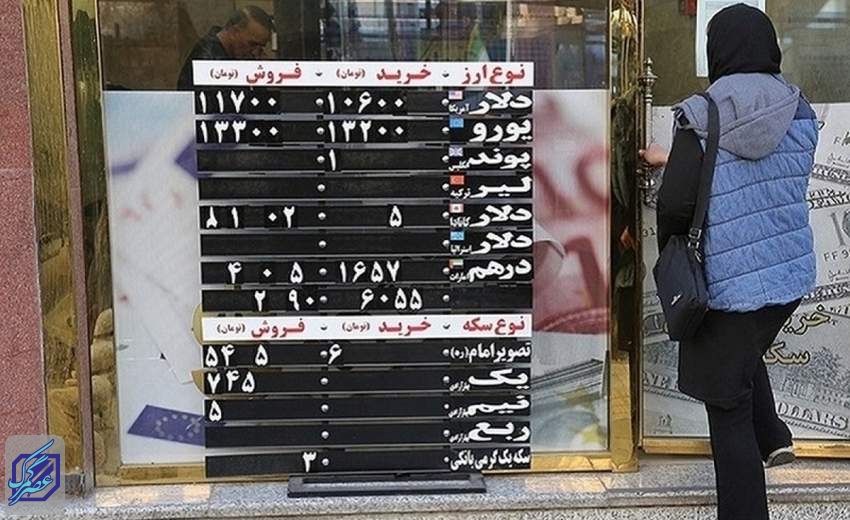 نوع ارز - خرید (تومان) - فروش (تومان)
دلار آمریکا ۱۰۶۰۰ ۱۱۷۰۰
یورو ۱۳۲۰۰ ۱۳۳۰۰
پوند انگلیس ۱
لیر ترکیه
دلار کانادا ۵ ۸۱۰۲
دلار استرالیا
درهم امارات ۱۶۵۷ ۴۰۵
۶۰۵۵ ۲۹۰
نوع سکه - خرید (تومان) - فروش (تومان)
تصویر امام (ره) ۶ ۵۴۵
یک بهار آزادی ۷۴۵
نیم بهار آزادی ۵
ربع بهار آزادی
سکه یک گرمی بانکی ۳
خرید
سکه
DOLLARS
FF
عصر گرگ